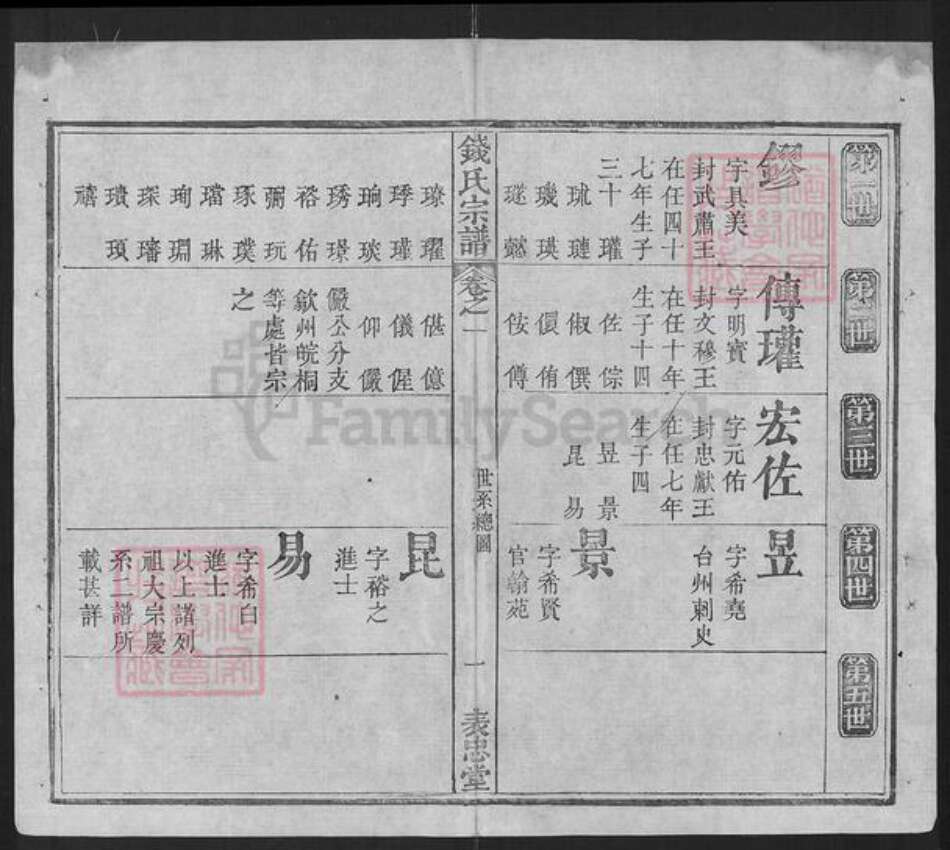 第一世
第二世
第三世
第四世
第五世
鏐
字具美
封武肅王
在任四十
七年生子
三十 瓘
琉 璉
璣 瑛
璲 懿
傳瓘
字明寳
封文穆王
在任十年
生子十四
佐 倧
俶 儇
侑
侒 僔
宏佐
字元佑
封忠獻王
在任七年
生子四
昱 景
昆 易
昱
字希堯
台州刺史
景
字希賢
官翰苑
錢氏宗譜
卷之一
世系總圖
一
表忠堂
璙 瓘
琇 璟
裕 佑
琢 璞
璫 琳
珣
琛 璠
瓆 頊
禧
偡 億
儀 偓
仰 儼
儼公分支
歙州皖桐
等處皆宗
之
昆
字裕之
進士
易
字希白
進士
以上譜列
祖大宗慶
系二譜所
載甚詳
FamilySearch